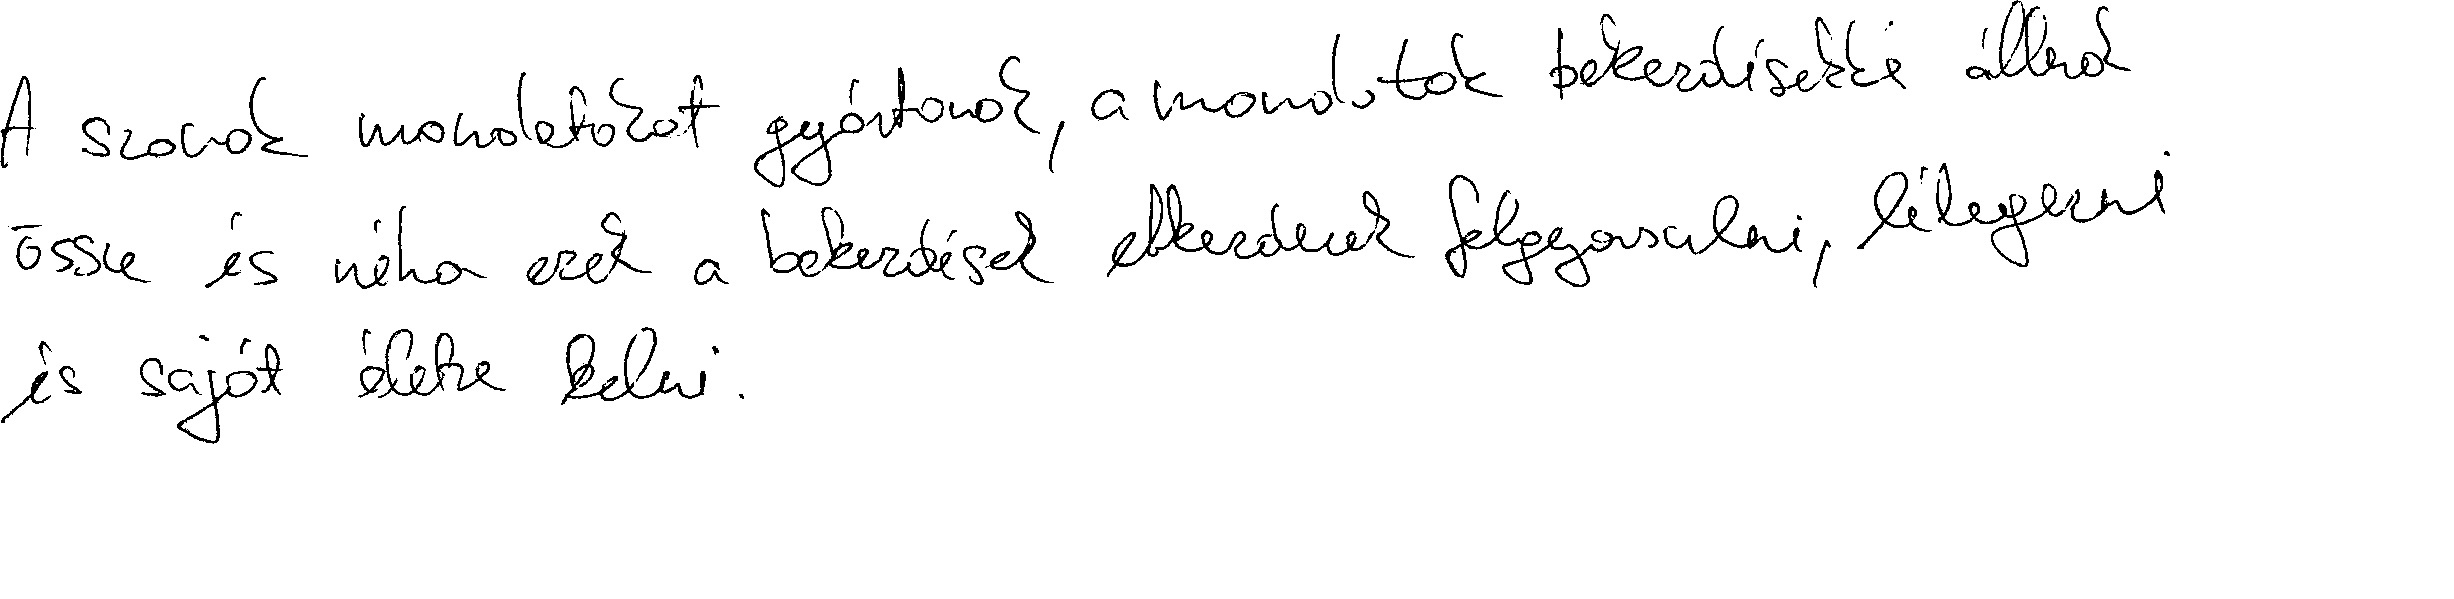 A szavak mondatokat gyártanak, a mondatok bekezdésekké állnak
össze és néha ezek a bekezdések elkezdenek felgyorsulni, lélegezni
és saját életre kelni.